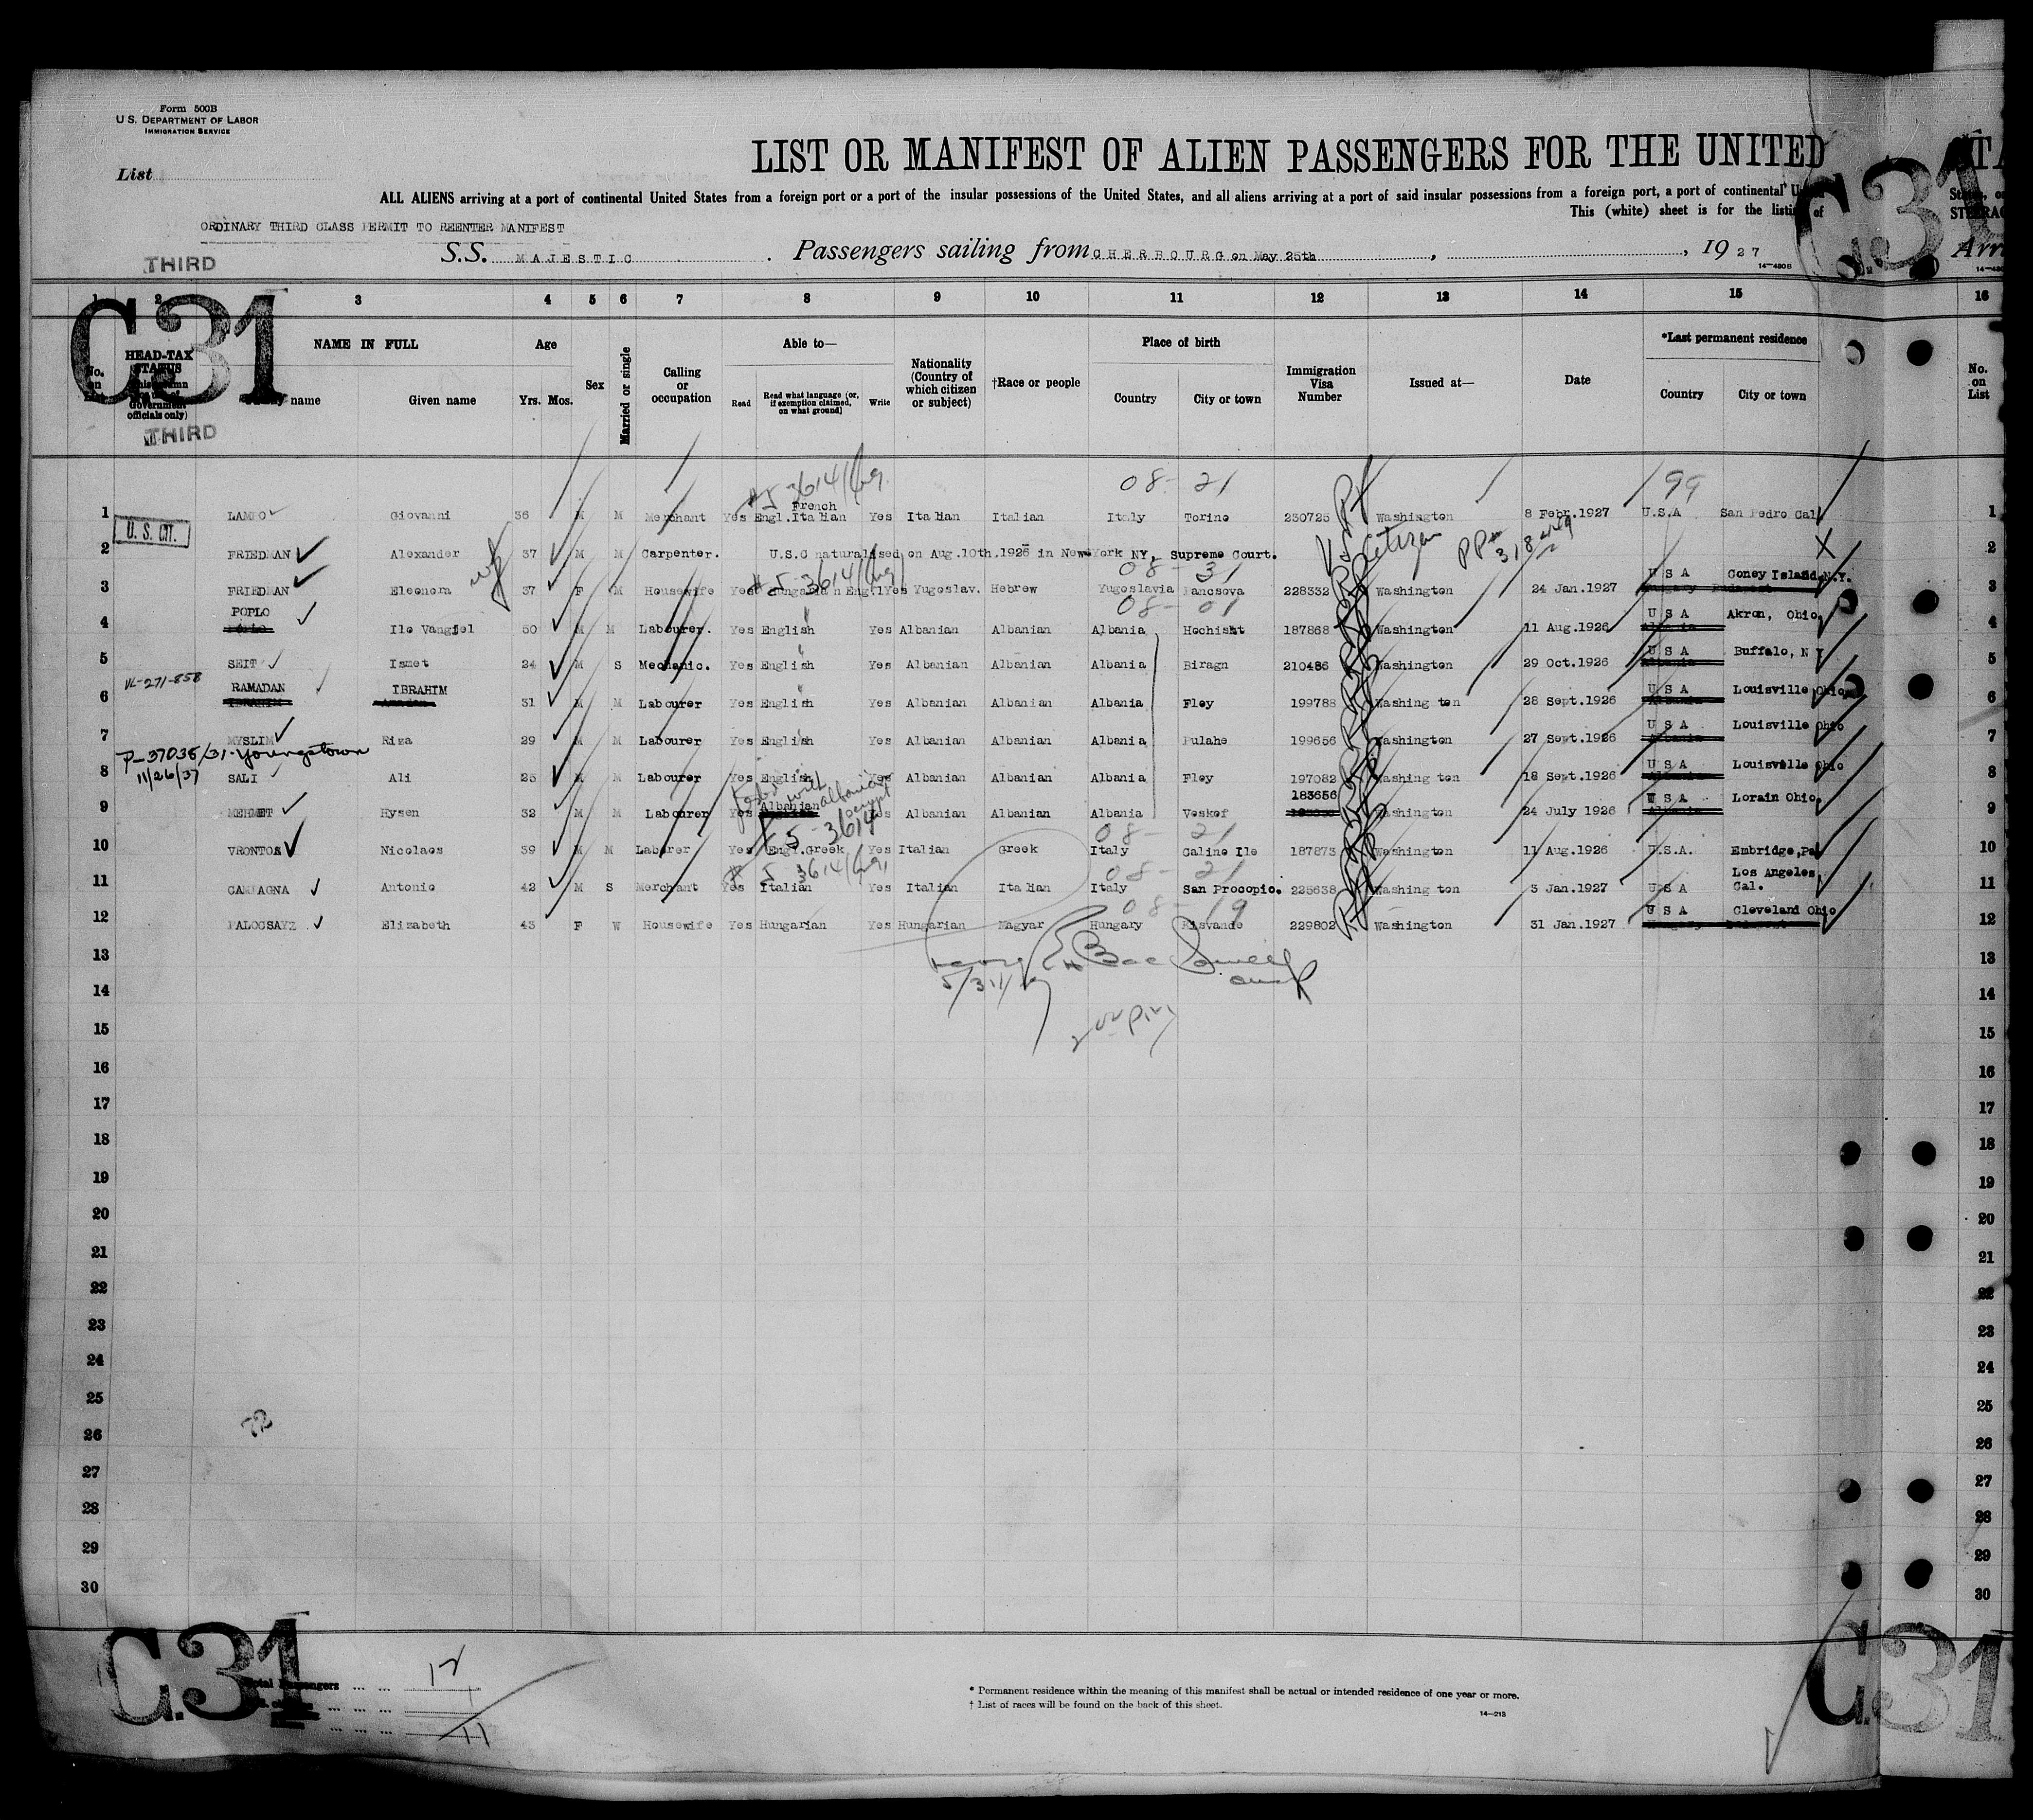 Form 500B
U. S. DEPARTMENT OF LABOR
IMMIGRATION SERVICE
List
LIST OR MANIFEST OF ALIEN PASSENGERS FOR THE UNITED
ALL ALIENS arriving at a port of continental United States from a foreign port or a port of the insular possessions of the United States, and all aliens arriving at a port of said insular possessions from a foreign port, a port of continental
This (white) sheet is for the listing of
ORDINARY THIRD CLASS PERMIT TO REENTER MANIFEST
THIRD
S.S. MAJESTIC . Passengers sailing from CHERBOURG on May 25th , , 1927
14-4806
C.31
1 2 3 4 5 6 7 8 9 10 11 12 13 14 15 16
No. on List
HEAD-TAX STATUS (This column for use of Government officials only)
NAME IN FULL
Family name Given name
Age Yrs. Mos.
Sex
Married or single
Calling or occupation
Able to—
Read Read what language (or, if exemption claimed, on what ground) Write
Nationality (Country of which citizen or subject)
†Race or people
Place of birth
Country City or town
Immigration Visa Number
Issued at—
Date
*Last permanent residence
Country City or town
No. on List
THIRD
C.31
08-21 199
1 LAMPO Giovanni 36 M M Merchant Yes Engl.Italian French Yes Italian Italian Italy Torino 230725 Washington 8 Febr.1927 U.S.A San Pedro Cal 1
U. S. CIT.
2 FRIEDMAN Alexander 37 M M Carpenter. U.S.C naturalised on Aug.10th.1926 in New York NY, Supreme Court. U.S. Citizen 2
08-31
3 FRIEDMAN Eleonora wf 37 F M Housewife Yes Hungarian Engl Yes Yugoslav. Hebrew Yugoslavia Pancsova 228332 Washington 24 Jan.1927 U S A Coney Island,N.Y. 3
08-01
4 POPLO Ilo Vangjel 50 M M Labourer. Yes English Yes Albanian Albanian Albania Hochisht 187868 Washington 11 Aug.1926 U S A Akron, Ohio, 4
5 SEIT Ismet 24 M S Mechanic. Yes English Yes Albanian Albanian Albania Biragn 210486 Washington 29 Oct.1926 U S A Buffalo, N Y 5
VL-271-858
6 RAMADAN IBRAHIM 31 M M Labourer Yes English Yes Albanian Albanian Albania Fley 199788 Washington 28 Sept.1926 U S A Louisville Ohio, 6
7 MYSLIM Riza 29 M M Labourer Yes English Yes Albanian Albanian Albania Pulahe 199656 Washington 27 Sept.1926 U S A Louisville Ohio 7
P-37035/31-Youngstown
11/26/37
8 SALI Ali 25 M M Labourer Yes English Yes Albanian Albanian Albania Fley 197082 Washington 18 Sept.1926 U S A Louisville Ohio 8
9 MEHMET Hysen 32 M M Labourer Yes Albanian Yes Albanian Albanian Albania Voskof 183656 Washington 24 July 1926 U S A Lorain Ohio, 9
5-3614
08-21
10 VRONTOS Nicolaos 39 M M Laborer Yes Engl.Greek Yes Italian Greek Italy Calino Ile 187873 Washington 11 Aug.1926 U.S.A. Embridge,Pa 10
08-21
11 CAMPAGNA Antonio 42 M S Merchant Yes Italian Yes Italian Italian Italy San Procopio. 225638 Washington 3 Jan.1927 U S A Los Angeles, Cal. 11
08-19
12 PALOCSAYZ Elizabeth 43 F W Housewife Yes Hungarian Yes Hungarian Magyar Hungary Kisvande 229802 Washington 31 Jan.1927 U S A Cleveland Ohio 12
13 13
14 14
15 15
16 16
17 17
18 18
19 19
20 20
21 21
22 22
23 23
24 24
25 25
26 26
27 27
28 28
29 29
30 30
C.31
Total Passengers ... ... 12
1
11
* Permanent residence within the meaning of this manifest shall be actual or intended residence of one year or more.
† List of races will be found on the back of this sheet.
14—213
C.31